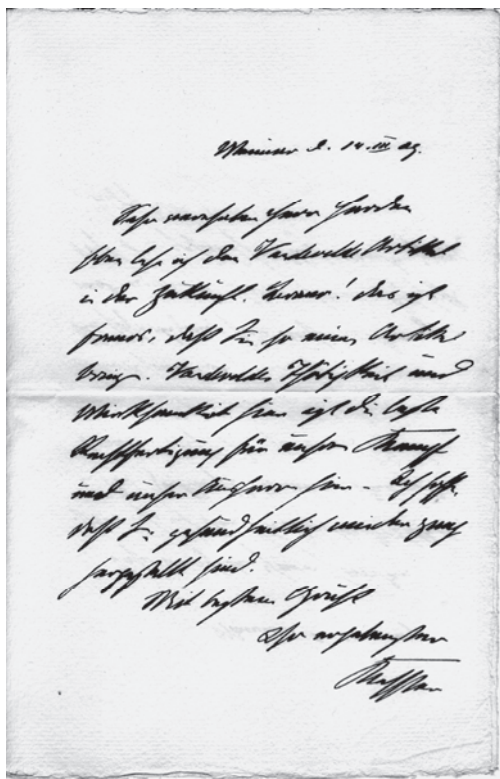 Weimar d. 14. III 09.
Sehr verehrter Herr Harden
eben lese ich den Vandevelde Artikel
in der Zukunft. Bravo! das ist
famos, daß Sie so einen Artikel
bringen. Vandeveldes Thätigkeit und
Wirksamkeit hier ist die beste
Rechtfertigung für unsern Kampf
und unser hier. Ich hoffe,
daß Sie gesundheitlich wieder ganz
hergestellt sind.
Mit bestem Gruße
Ihr ergebenster
Kessler